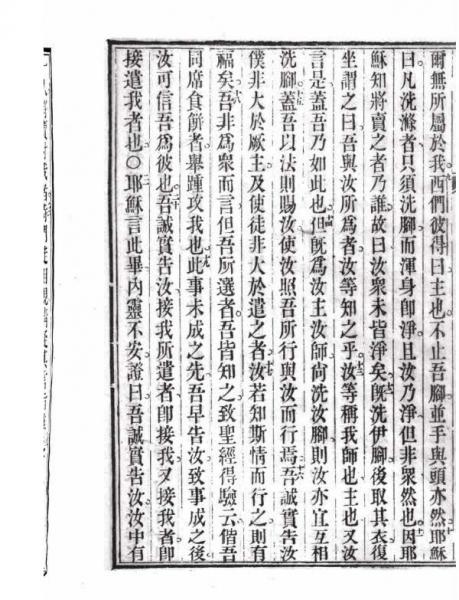 爾無所屬於我西們彼得曰主也不止吾腳並手與頭亦然耶穌
曰凡洗滌者只須洗腳而渾身卽淨且汝乃淨但非衆然也因耶
穌知將賣之者乃誰故曰汝衆未皆淨矣旣洗伊腳後取其衣復
坐謂之曰吾與汝所爲者汝等知之乎汝等稱我師也主也又汝
言是蓋吾乃如此也但旣爲汝主汝師尚洗汝腳則汝亦宜互相
洗腳蓋吾以法則賜汝使汝照吾所行與汝而行焉吾誠實告汝
僕非大於厥主及使徒非大於遣之者汝若知斯情而行之則有
福矣吾非爲衆而言但吾所選者吾皆知之致聖經得驗云偕吾
同席食餅者舉踵攻我也此事未成之先吾早告汝致事成之後
汝可信吾爲彼也吾誠實告汝接我所遣者卽接我又接我者卽
接遣我者也○耶穌言此畢內靈不安證曰吾誠實告汝汝中有